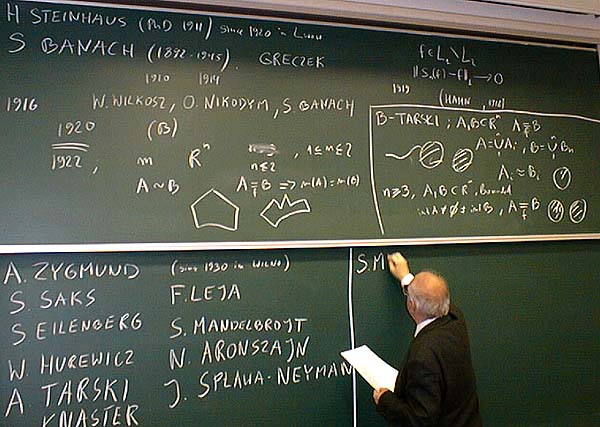 H STEINHAUS (PhD 1911) since 1920 in Lwow
S BANACH (1892-1945). GRECZEK
1920 1914
1916 W. WILKOSZ, O. NIKODYM, S. BANACH
1920 (B)
1922 ; m Rⁿ n≤2 , 1≤n≤2
A∼B A ≡ B => m(A) = m(B)
f
f∈L₁\L₂
||Sₙ(f)-f||₁→0
1919
(HAHN, 1916)
B-TARSKI ; A,B⊂Rⁿ A ≡ B
f
A=∪Aᵢ, B=∪Bₙ
Aᵢ≈Bᵢ
n≥3, A,B⊂Rⁿ, Bounded
int A≠∅≠int B, A ≡ B
f
A. ZYGMUND (since 1930 in WILNO)
S. SAKS F. LEJA
S EILENBERG S. MANDELBROJT
W. HUREWICZ N. ARONSZAJN
A TARSKI J. SPLAWA-NEYMAN
KNASTER
S. M